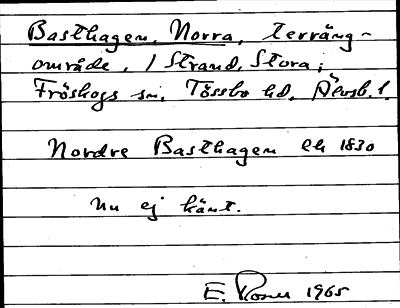 Basthagen, Norra, terräng-
område, / Strand, Stora;
Fröskogs sn, Tössbo hd, Älvsb. l.
Nordre Basthagen Ek 1830
Nu ej känt.
E. Rosen 1965